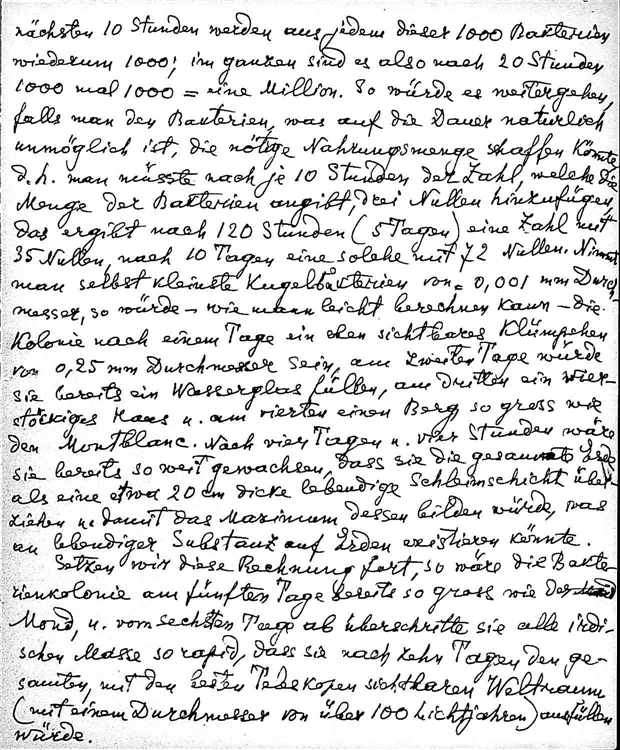 nächsten 10 Stunden werden aus jedem dieser 1000 Bakterien
wiederum 1000; im ganzen sind es also nach 20 Stunden
1000 mal 1000 = eine Million. So würde es weitergehen,
falls man den Bakterien, was auf die Dauer natürlich
unmöglich ist, die nötige Nahrungsmenge schaffen könnte,
d.h. man müsste nach je 10 Stunden der Zahl, welche die
Menge der Bakterien angibt, drei Nullen hinzufügen,
das ergibt nach 120 Stunden (5 Tagen) eine Zahl mit
35 Nullen, nach 10 Tagen eine solche mit 72 Nullen. Nimmt
man selbst kleinste Kugelbakterien von = 0,001 mm Durch-
messer, so würde – wie mann leicht berechnen kann – die
Kolonie nach einem Tage ein eben sichtbares Klümpchen
von 0,25 mm Durchmesser sein, am zweiten Tage würde
sie bereits ein Wasserglas füllen, am dritten ein vier-
stöckiges Haus u. am vierten einen Berg so gross wie
den Montblanc. Nach vier Tagen u. vier Stunden wäre
sie bereits so weit gewachsen, dass sie die gesammte Erde
als eine etwa 20 cm dicke lebendige Schleimschicht über-
ziehen u. damit das Maximum dessen bilden würde, was
an lebendiger Substanz auf Erden existieren könnte.
Setzen wir diese Rechnung fort, so wäre die Bakte-
rienkolonie am fünften Tage bereits so gross wie der
Mond, u. vom sechsten Tage ab überschritte sie alle irdi-
schen Masse so rapid, dass sie nach zehn Tagen den ge-
samten, mit den besten Teleskopen sichtbaren Weltraum
(mit einem Durchmesser von über 100 Lichtjahren) ausfüllen
würde.